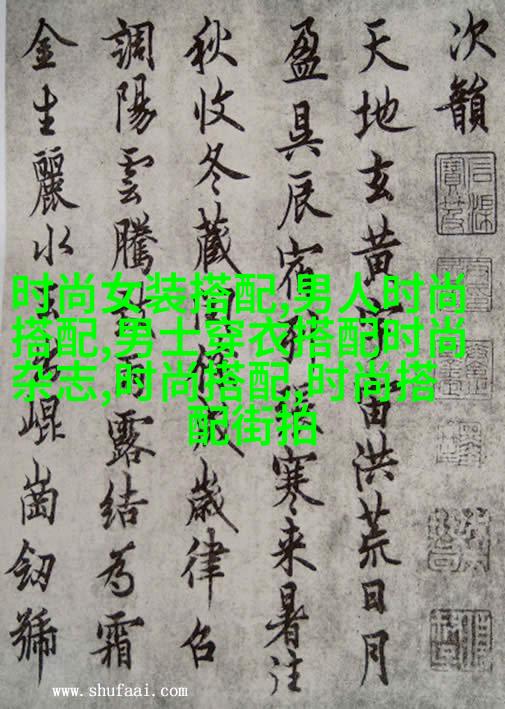 次韻
天地玄黄宇宙洪荒日月
盈昃辰宿列張寒来暑往
秋收冬藏閏餘成歲律吕
調陽雲騰致雨露結為霜
金生麗水玉出崐崗劒號
时尚女装搭配,男人时尚
搭配,男士穿衣搭配时尚
杂志,时尚搭配,时尚搭
配街拍
www.shufaai.com